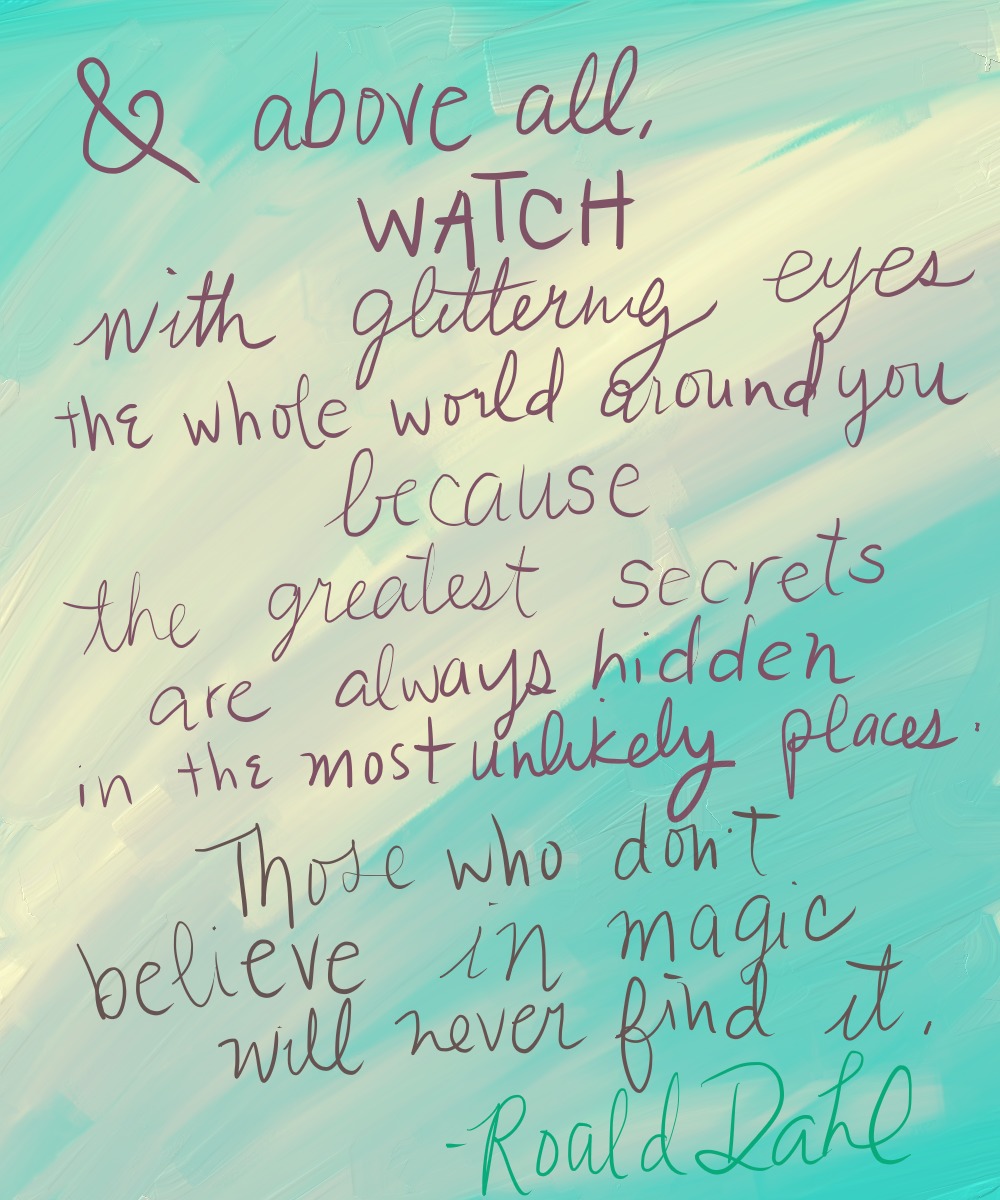 & above all,
WATCH
with glittering eyes
the whole world around you
because
the greatest secrets
are always hidden
in the most unlikely places.
Those who don't
believe in magic
will never find it.
-Roald Dahl